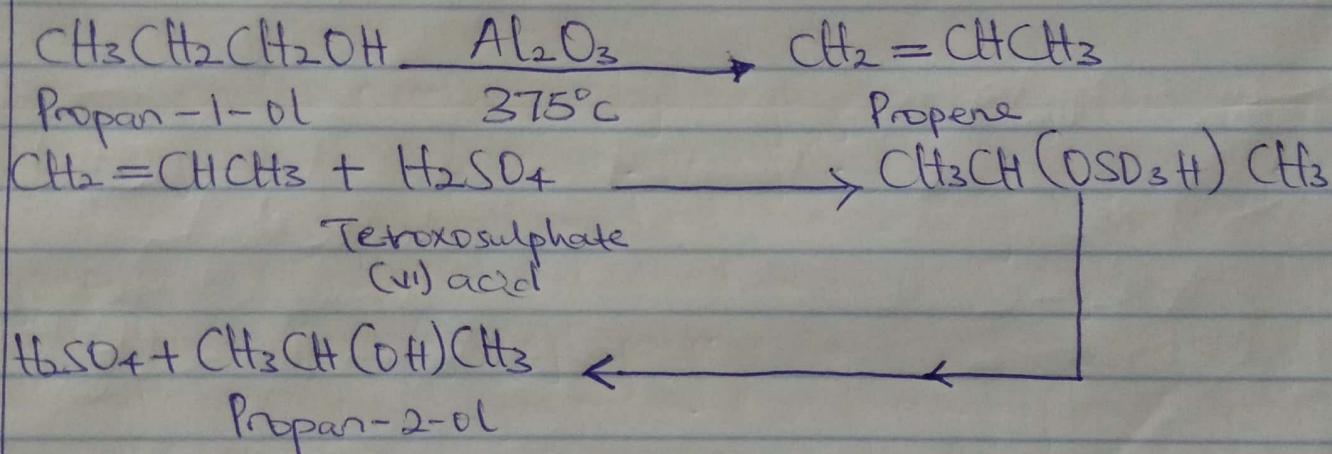 CH3CH2CH2OH Al2O3 CH2 = CHCH3
Propan-1-ol 375°C Propene
CH2 = CHCH3 + H2SO4 CH3CH(OSO3H)CH3
Tetroxosulphate
(VI) acid
H2SO4 + CH3CH(OH)CH3
Propan-2-ol